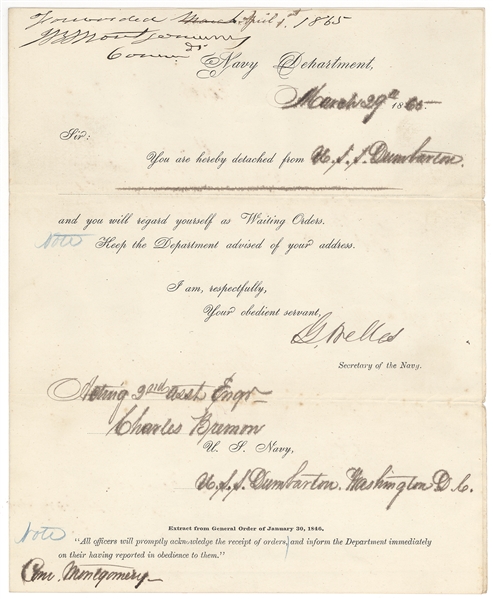 Forwarded March April 1st, 1865
JBMontgomery
Comdr
Navy Department,
March 29th 1865.
Sir:
You are hereby detached from U.S.S. Dumbarton.
and you will regard yourself as Waiting Orders.
Note Keep the Department advised of your address.
I am, respectfully,
Your obedient servant,
G. Welles
Secretary of the Navy.
Acting 3rd Asst. Engr.
Charles Bremon
U. S. Navy,
U.S.S. Dumbarton. Washington D.C.
Extract from General Order of January 30, 1846.
Note "All officers will promptly acknowledge the receipt of orders, and inform the Department immediately
on their having reported in obedience to them."
Com. Montgomery